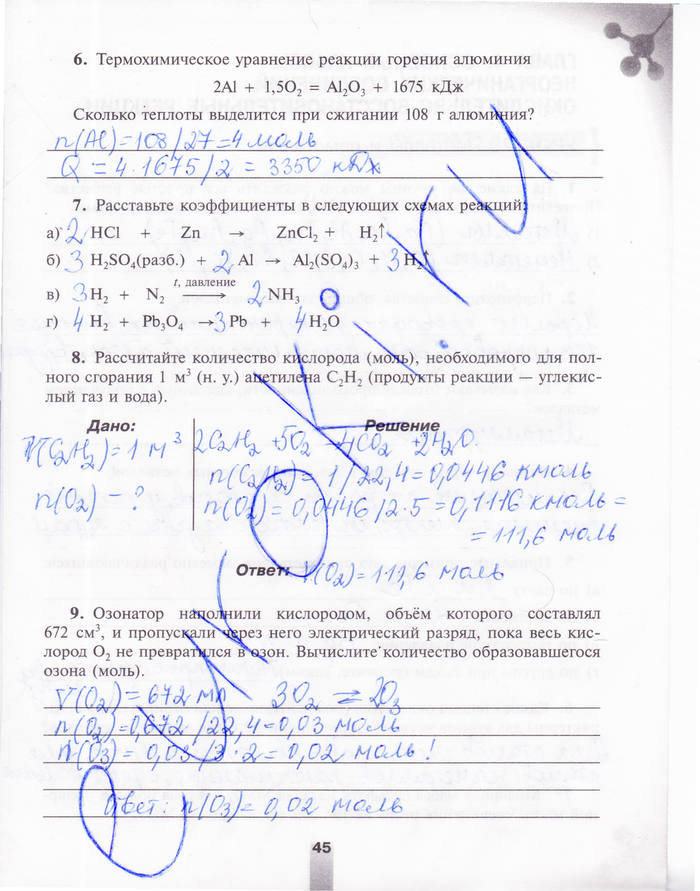 6. Термохимическое уравнение реакции горения алюминия
2Al + 1,5O₂ = Al₂O₃ + 1675 кДж
Сколько теплоты выделится при сжигании 108 г алюминия?
n(Al)=108/27=4 моль
Q = 4·1675/2 = 3350 кДж
7. Расставьте коэффициенты в следующих схемах реакций:
а) 2 HCl + Zn → ZnCl₂ + H₂↑
б) 3 H₂SO₄(разб.) + 2 Al → Al₂(SO₄)₃ + 3 H₂↑
t, давление
в) 3 H₂ + N₂ ⟶ 2 NH₃
г) 4 H₂ + Pb₃O₄ → 3 Pb + 4 H₂O
8. Рассчитайте количество кислорода (моль), необходимого для пол-
ного сгорания 1 м³ (н. у.) ацетилена C₂H₂ (продукты реакции — углекис-
лый газ и вода).
Дано: Решение
V(C₂H₂)=1 м³ 2C₂H₂ + 5O₂ → 4CO₂ + 2H₂O
n(C₂H₂) = 1/22,4 = 0,0446 кмоль
n(O₂) - ? n(O₂) = 0,0446/2·5 = 0,1116 кмоль =
= 111,6 моль
Ответ: V(O₂)=111,6 моль
9. Озонатор наполнили кислородом, объём которого составлял
672 см³, и пропускали через него электрический разряд, пока весь кис-
лород O₂ не превратился в озон. Вычислите количество образовавшегося
озона (моль).
V(O₂) = 672 мл 3O₂ ⇄ 2O₃
n(O₂)=0,672/22,4=0,03 моль
n(O₃) = 0,03/3·2 = 0,02 моль!
Ответ: n(O₃)=0,02 моль
45